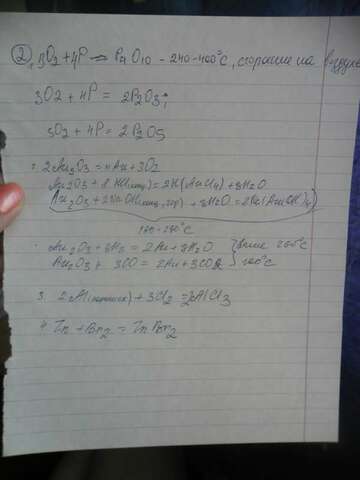 2 1. 3O2 + 4P = P4O10 - 240-400°C, сгорание на воздухе
3O2 + 4P = 2P2O3;
5O2 + 4P = 2P2O5
2. 2Au2O3 = 4Au + 3O2
Au2O3 + 8HCl(конц) = 2H(AuCl4) + 3H2O
Au2O3 + 2NaOH(конц, гор) + 3H2O = 2Na(Au(OH)4)
Au2O3 + 3H2 = 2Au + 3H2O выше 200°C
Au2O3 + 3CO = 2Au + 3CO2
3. 2Al(порошок) + 3Cl2 = 2AlCl3
4. Zn + Br2 = ZnBr2